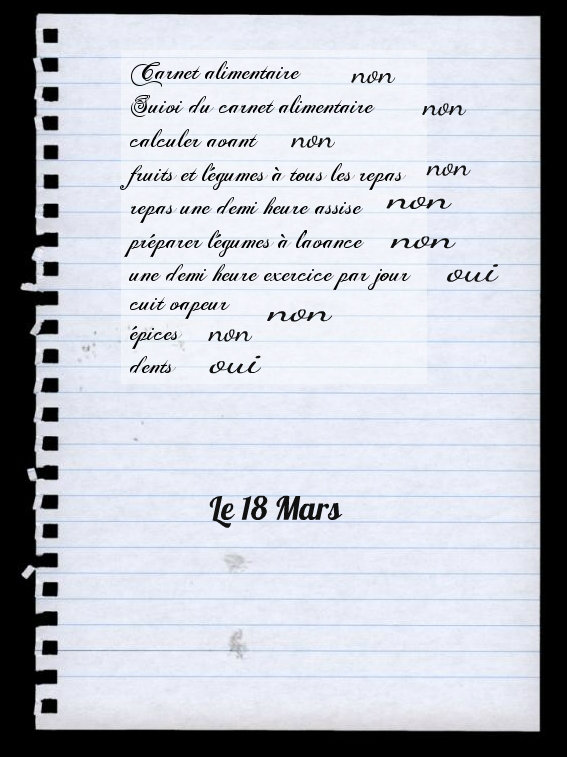 Carnet alimentaire non
Suivi du carnet alimentaire non
calculer avant non
fruits et légumes à tous les repas non
repas une demi heure assise non
préparer légumes à l'avance non
une demi heure exercice par jour oui
cuit vapeur non
épices non
dents oui
Le 18 Mars